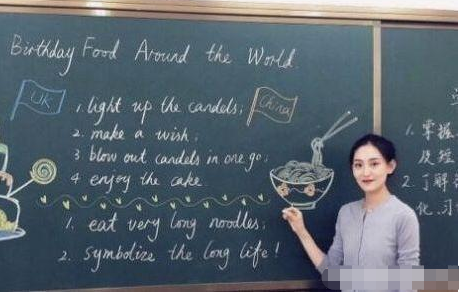 Birthday Food Around the World.
UK
1. light up the candels;
China
2. make a wish;
3. blow out candels in one go;
4 enjoy the cake
1. eat very long noodles;
2. symbolize the long life!
1. 掌握
及短
2. 了解
化、习